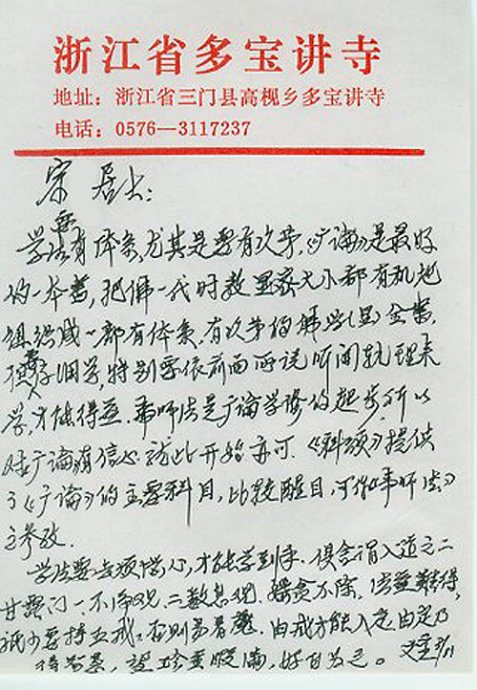 浙江省多宝讲寺
地址：浙江省三门县高枧乡多宝讲寺
电话：0576—3117237
宋 居士：
学法要有体系，尤其是要有次第，《广论》是最好
的一本书，把佛一代时教显密大小都有机地
组织成一部有体系，有次第的佛学(显)全书，
须要学，特别要依前面所说听闻轨理来
学，才能得益。事师法是广论学修的起步，所以
对广论有信心就此开始亦可。《科颂》提供
了《广论》的主要科目，比较醒目，可作《事师法》
之参考。
学法要去烦恼心，才能学到手。俱舍谓入道之二
甘露门一不净观、二数息观，婬贪不除，法益难得，
祇少要持五戒，否则易着魔。由戒方能入定，由定乃
得智慧，望珍重暇满，好自为之。